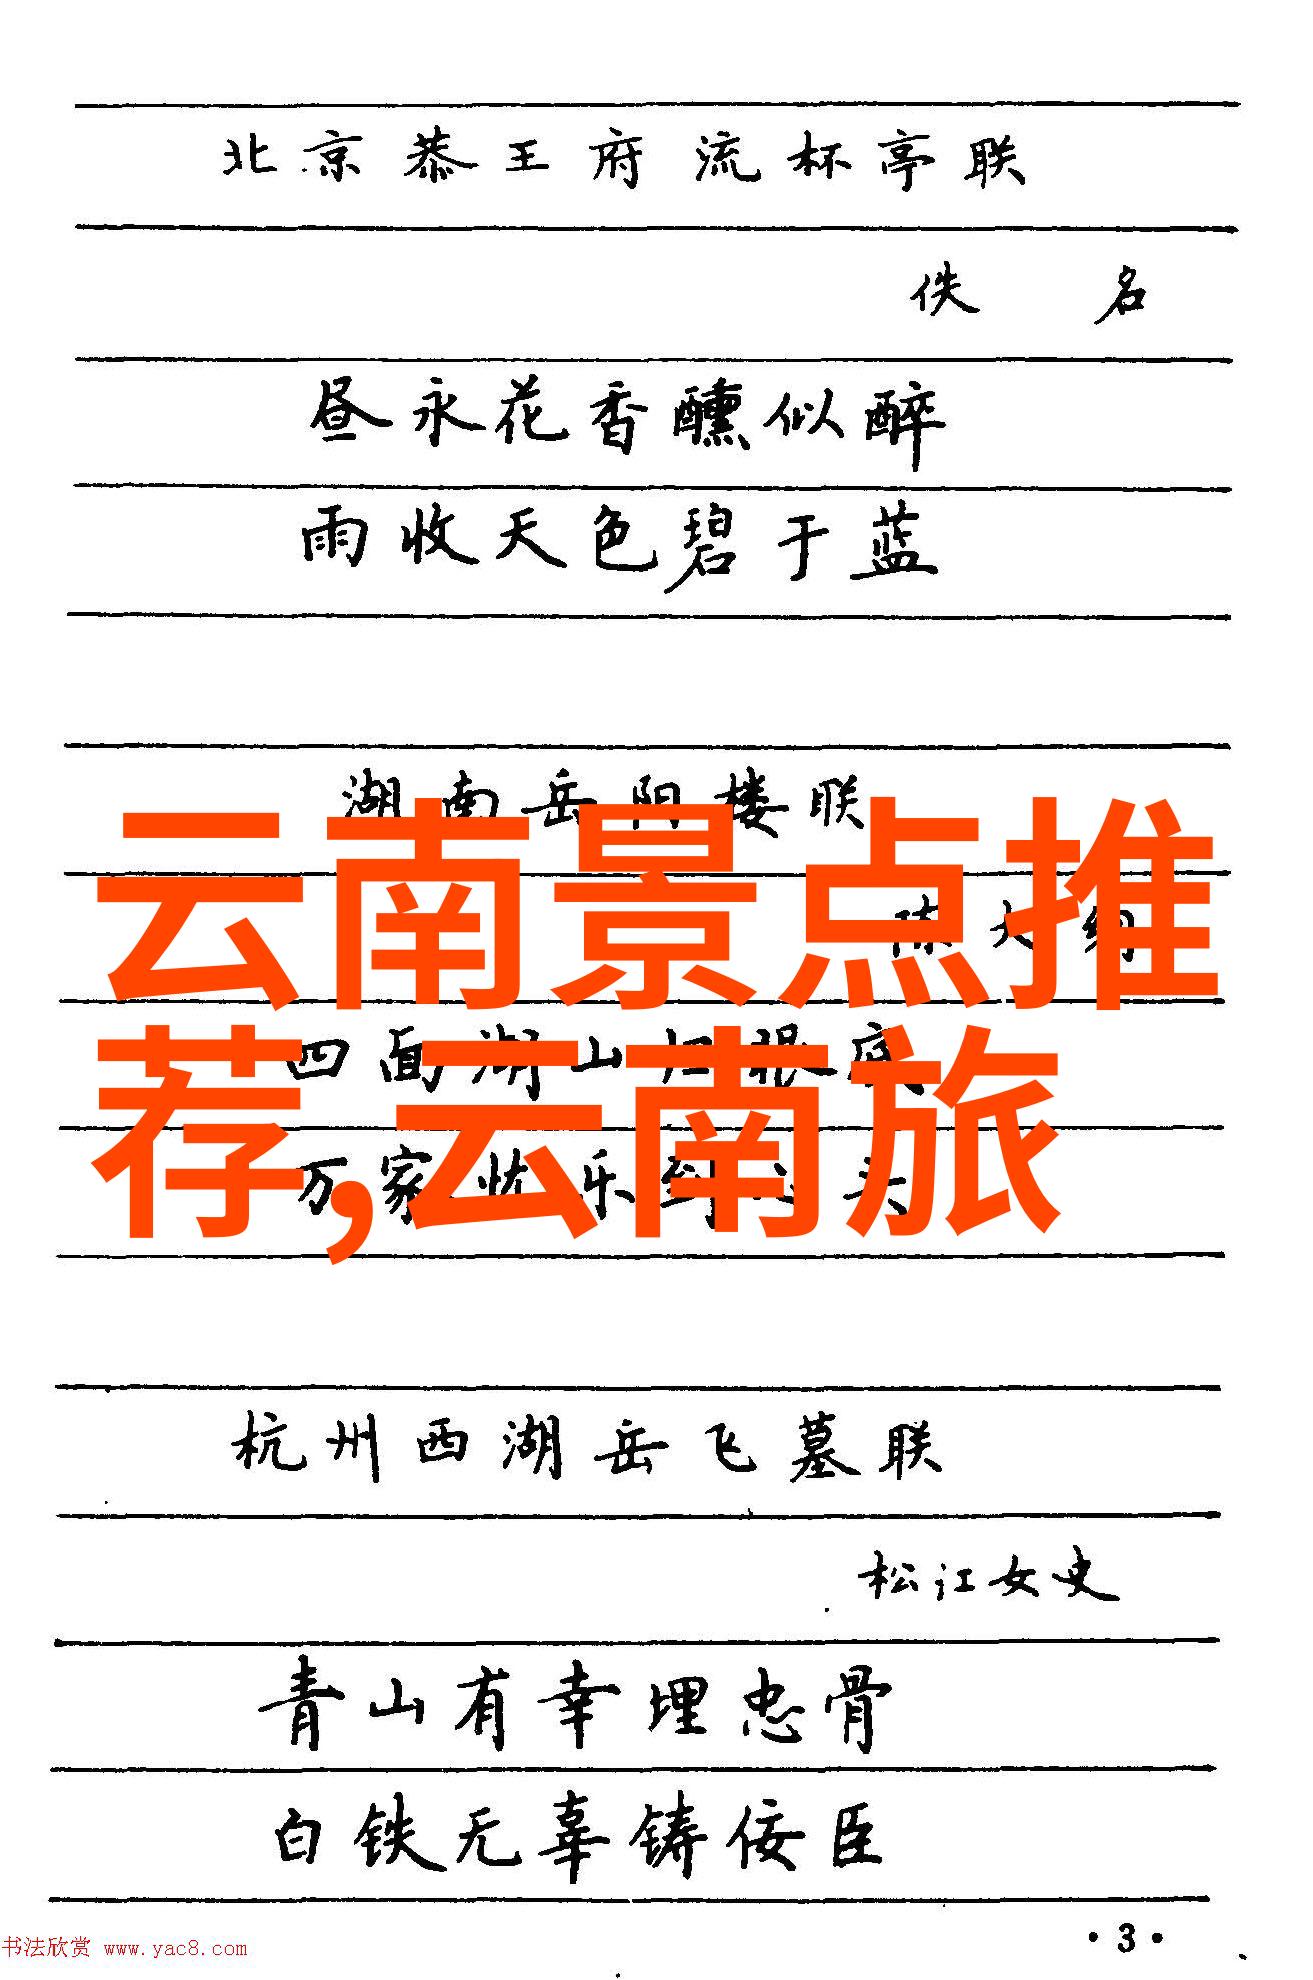 北京恭王府流杯亭联
佚名
昼永花香醺似醉
雨收天色碧于蓝
湖南岳阳楼联
陈大纲
云南景点推
四面湖山归眼底
荐,云南旅
万家忧乐到心头
杭州西湖岳飞墓联
松江女史
青山有幸埋忠骨
白铁无辜铸佞臣
·3·
书法欣赏 www.yac8.com